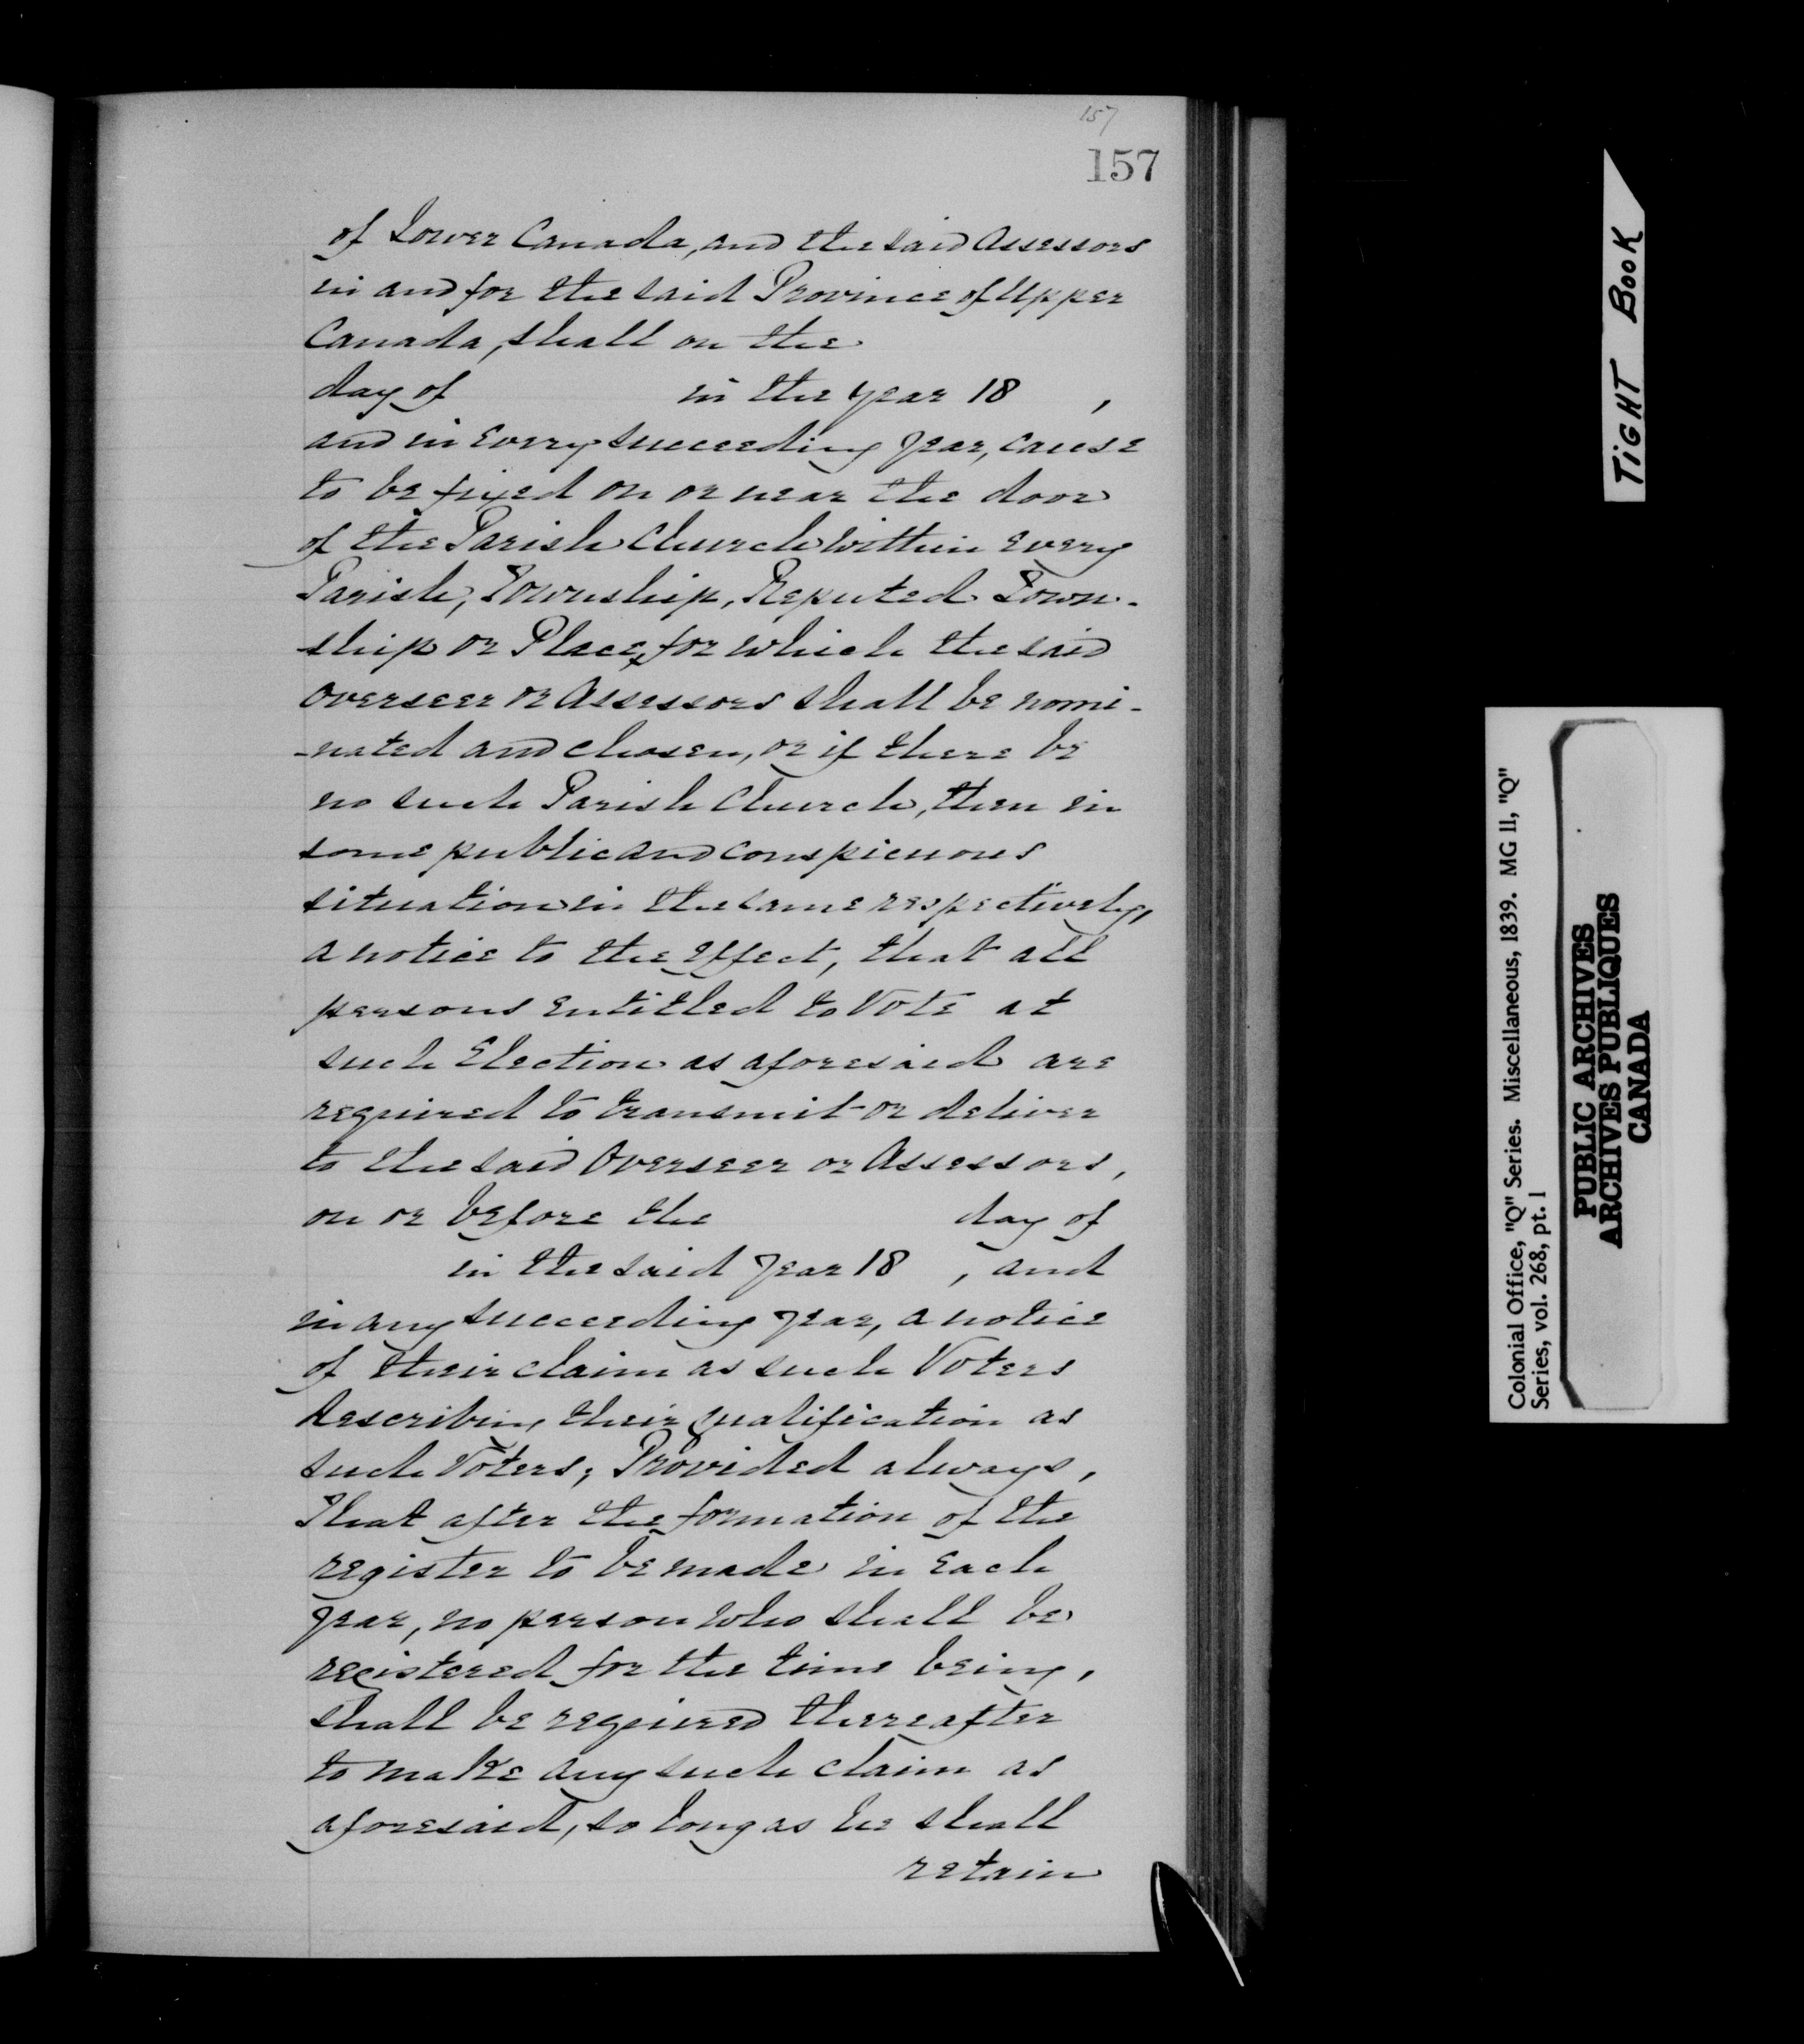 157
157
of Lower Canada, and the said Assessors
in and for the said Province of Upper
Canada, shall on the
day of in the year 18 ,
and in every succeeding year, cause
to be fixed on or near the door
of the Parish Church within every
Parish, Township, Reputed Town-
ship or Place, for which the said
Overseer or Assessors shall be nomi-
-nated and chosen, or if there be
no such Parish Church, then in
some public and conspicuous
situation in the same respectively,
a notice to the effect, that all
persons entitled to Vote at
such Election as aforesaid are
required to transmit or deliver
to the said Overseer or Assessors,
on or before the day of
in the said year 18 , and
in any succeeding year, a notice
of their claim as such Voters
describing their qualification as
such Voters; Provided always,
That after the formation of the
register to be made in each
year, no person who shall be
registered for the time being,
shall be required thereafter
to make any such claim as
aforesaid, so long as he shall
retain
TIGHT BOOK
Colonial Office, "Q" Series. Miscellaneous, 1839. MG 11, "Q"
Series, vol. 268, pt. 1
PUBLIC ARCHIVES
ARCHIVES PUBLIQUES
CANADA